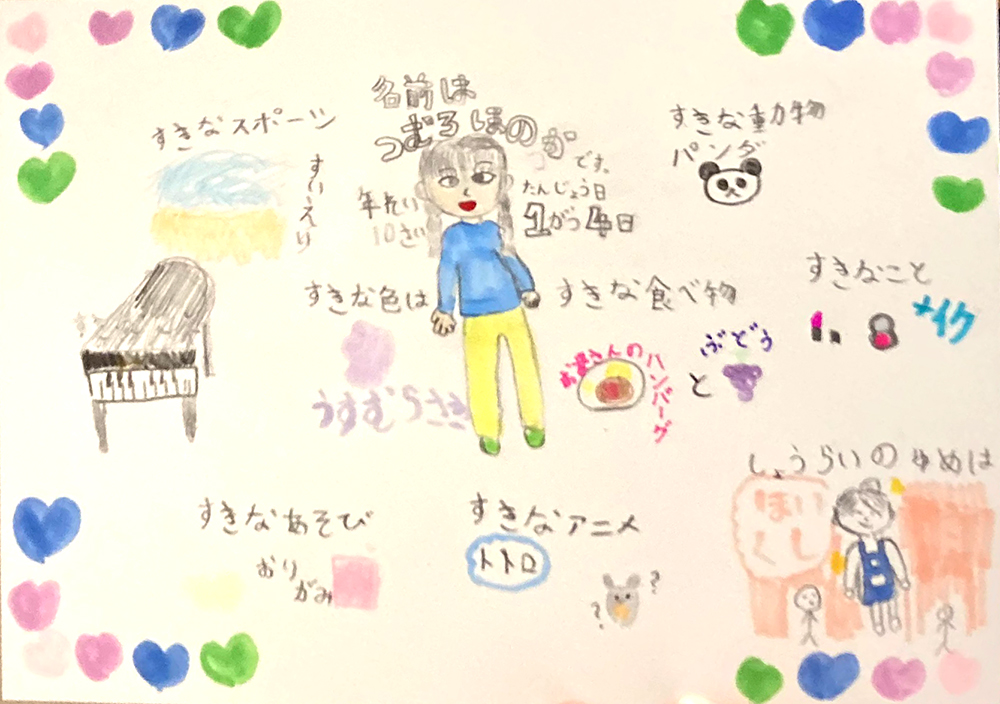 名前は
つむろほのか
です。
すきなスポーツ
すいえい
年れい
10さい
たんじょう日
1がつ4日
すきな動物
パンダ
すきな色は
うすむらさき
すきな食べ物
お母さんの
ハンバーグ
と
ぶどう
すきなこと
メイク
すきなあそび
おり
がみ
すきなアニメ
トトロ
?
?
しょうらいのゆめは
ほい
くし